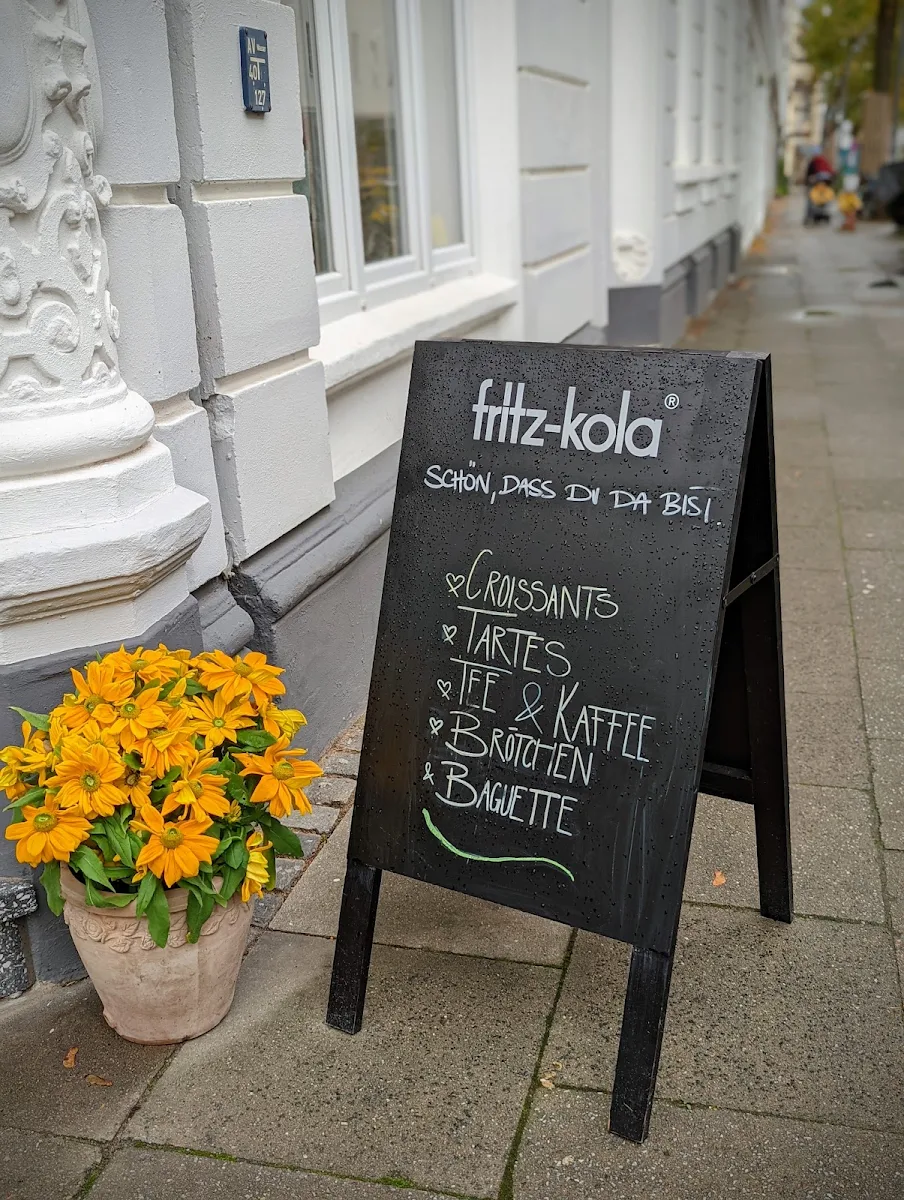 AV
401
127
fritz-kola®
SCHÖN, DASS DU DA BIST.
CROISSANTS
TARTES
TEE & KAFFEE
BRÖTCHEN
& BAGUETTE